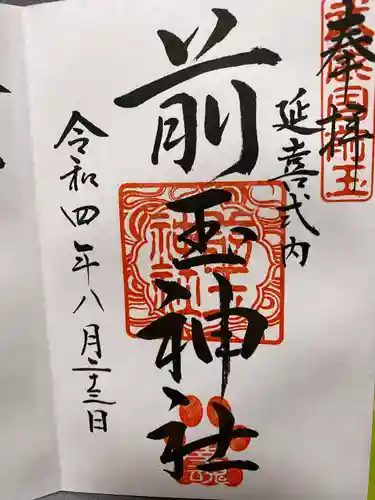 奉拝
延喜式内
前玉神社
令和四年八月二十三日